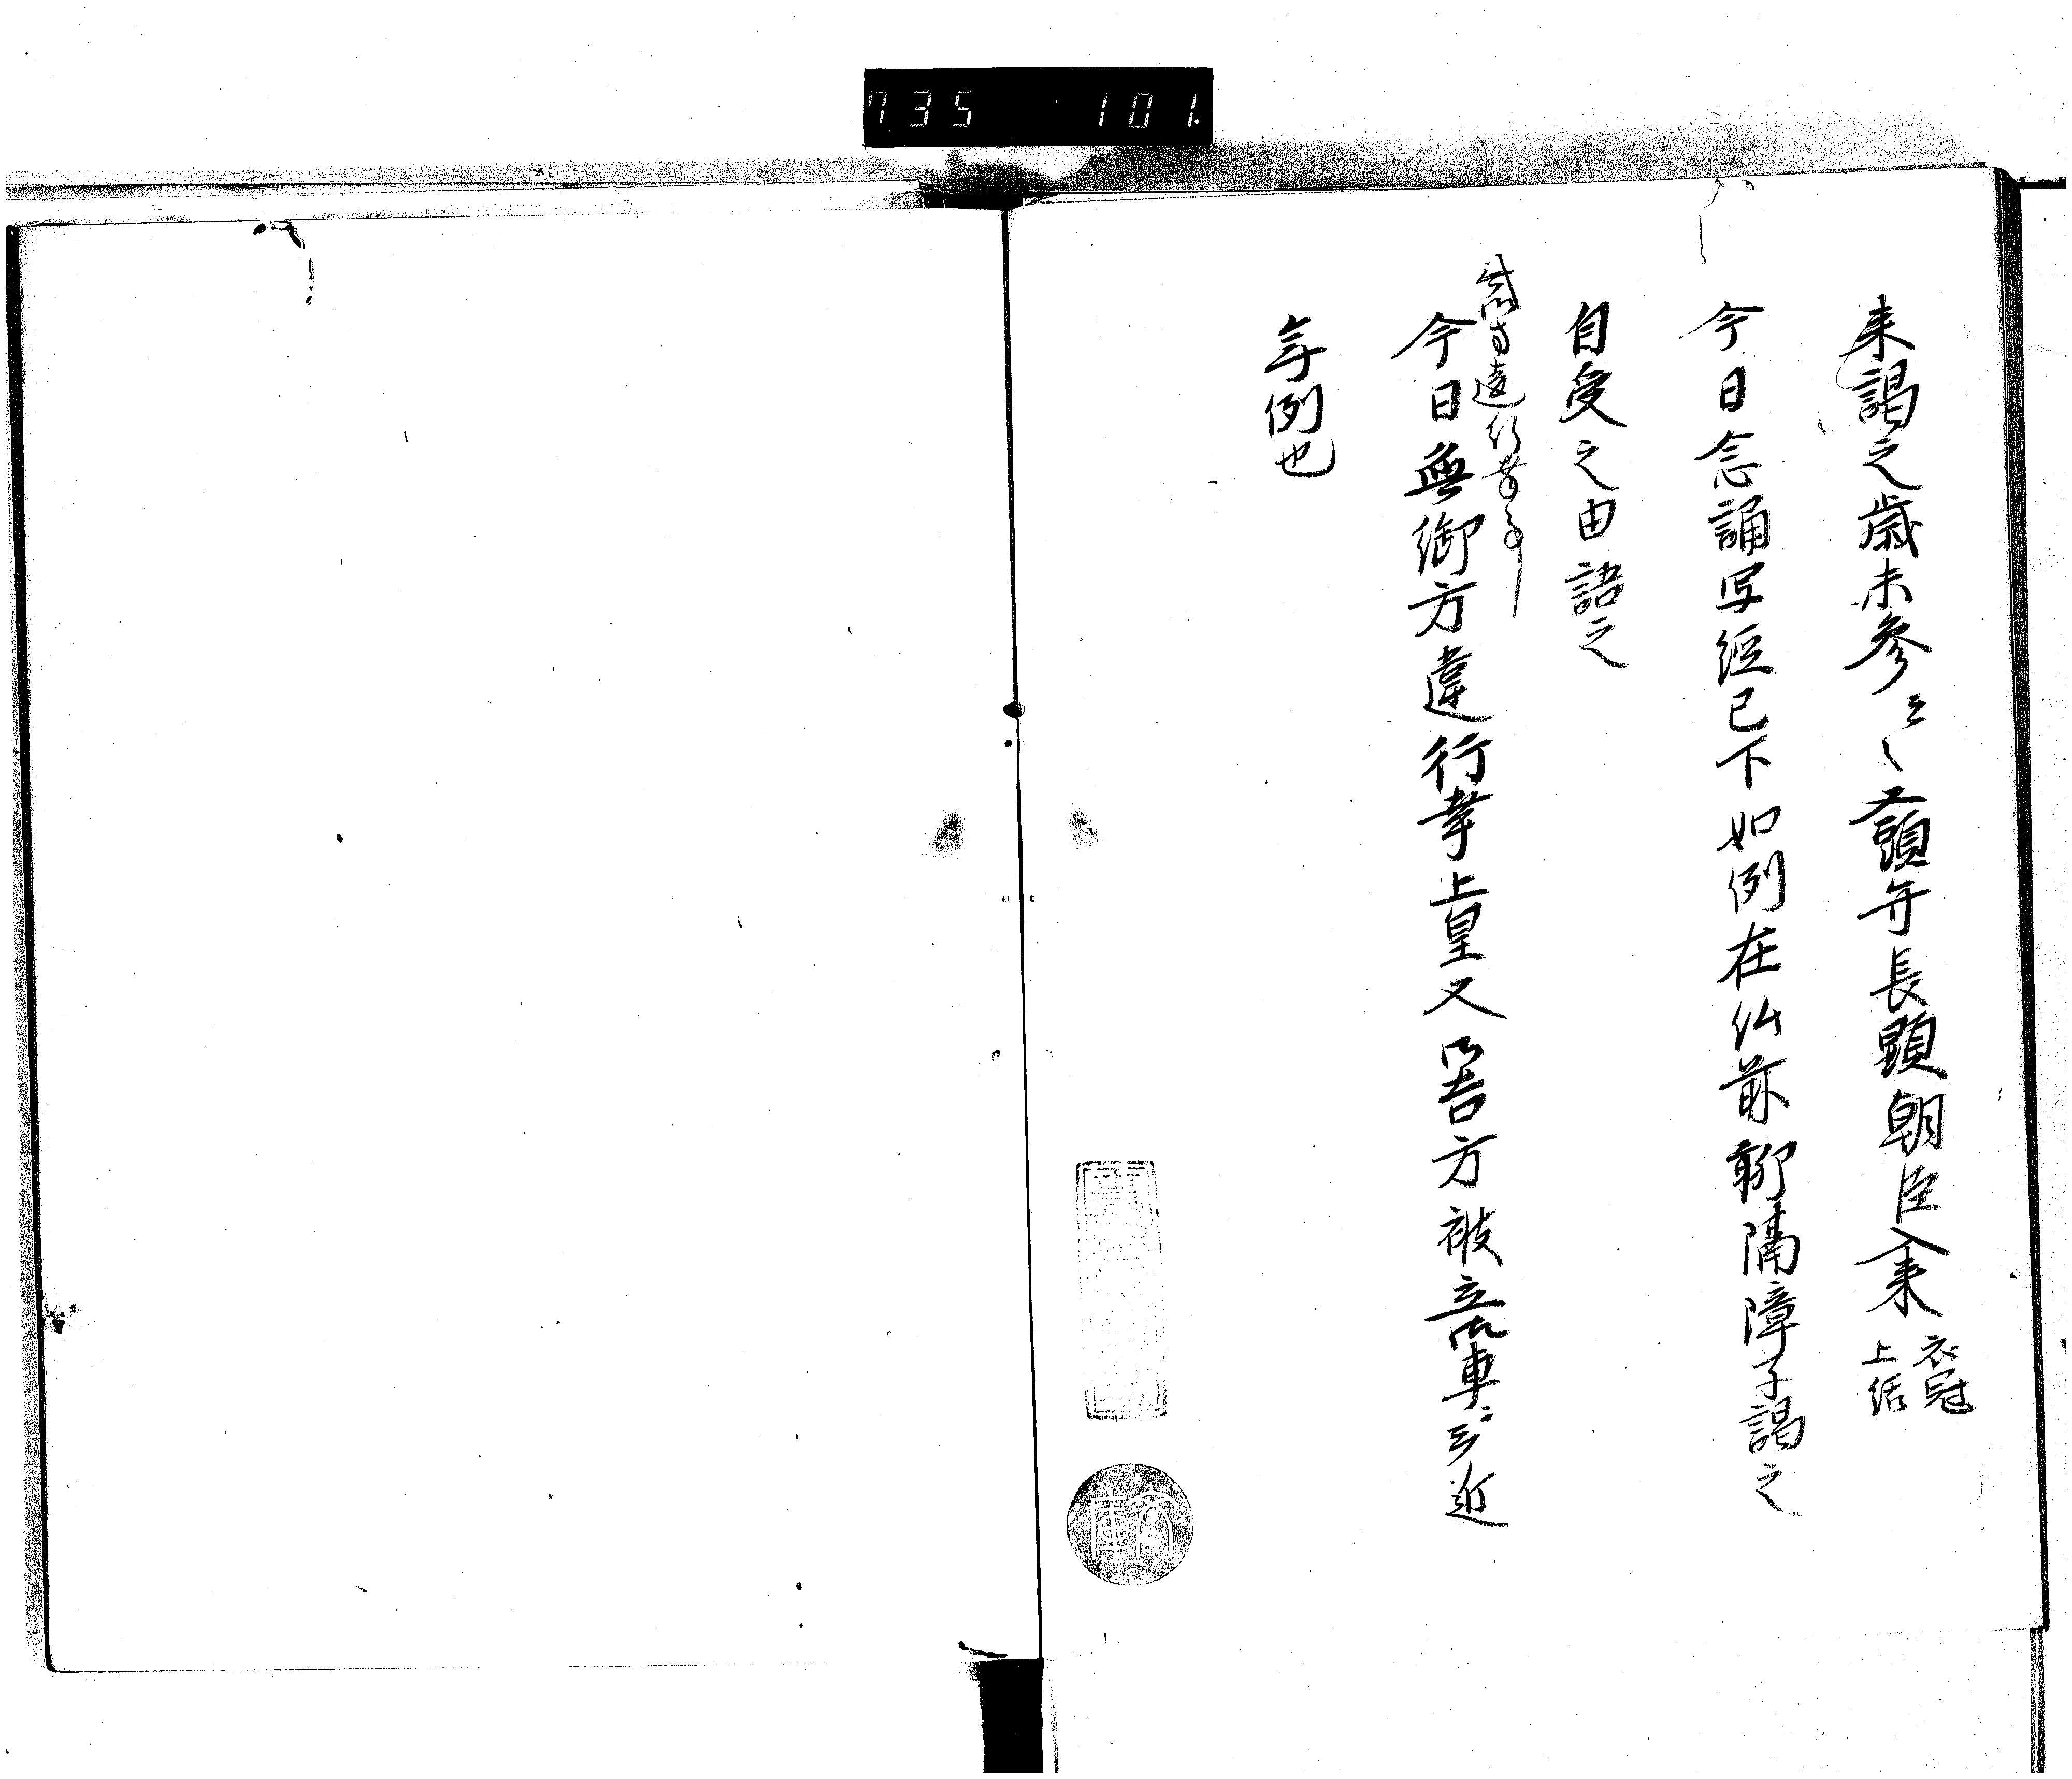 735 101.
来謁之歳末参云々又頭弁長顕朝臣入来 衣冠
上括
今日念誦写経已下如例在仏前聊隔障子謁之
自受之由語之
節分方違行幸事
今日無御方違行幸上皇又御吉方被立御車云々近
年例也